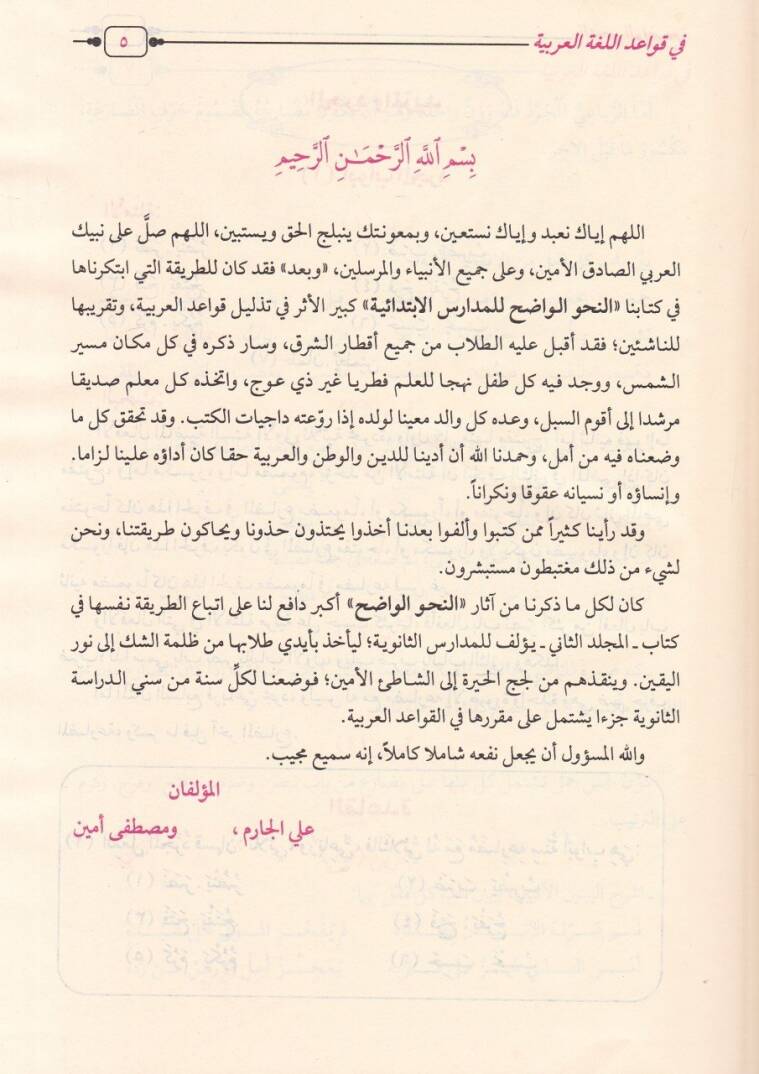 في قواعد اللغة العربية
٥
بِسْمِ ٱللَّهِ ٱلرَّحْمَـٰنِ ٱلرَّحِيمِ
اللهم إياك نعبد وإياك نستعين، وبمعونتك ينبلج الحق ويستبين، اللهم صلَّ على نبيك
العربي الصادق الأمين، وعلى جميع الأنبياء والمرسلين، «وبعد» فقد كان للطريقة التي ابتكرناها
في كتابنا «النحو الواضح للمدارس الابتدائية» كبير الأثر في تذليل قواعد العربية، وتقريبها
للناشئين؛ فقد أقبل عليه الطلاب من جميع أقطار الشرق، وسار ذكره في كل مكان مسير
الشمس، ووجد فيه كل طفل نهجا للعلم فطريا غير ذي عوج، واتخذه كل معلم صديقا
مرشدا إلى أقوم السبل، وعده كل والد معينا لولده إذا روّعته داجيات الكتب. وقد تحقق كل ما
وضعناه فيه من أمل، وحمدنا الله أن أدينا للدين والوطن والعربية حقا كان أداؤه علينا لزاما.
وإنساؤه أو نسيانه عقوقا ونكراناً.
وقد رأينا كثيراً ممن كتبوا وألفوا بعدنا أخذوا يحتذون حذونا ويحاكون طريقتنا، ونحن
لشيء من ذلك مغتبطون مستبشرون.
كان لكل ما ذكرنا من آثار «النحو الواضح» أكبر دافع لنا على اتباع الطريقة نفسها في
كتاب ـ المجلد الثاني ـ يؤلف للمدارس الثانوية؛ ليأخذ بأيدي طلابها من ظلمة الشك إلى نور
اليقين. وينقذهم من لجج الحيرة إلى الشاطئ الأمين؛ فوضعنا لكلِّ سنة من سني الدراسة
الثانوية جزءا يشتمل على مقررها في القواعد العربية.
والله المسؤول أن يجعل نفعه شاملا كاملاً، إنه سميع مجيب.
المؤلفان
علي الجارم ، ومصطفى أمين